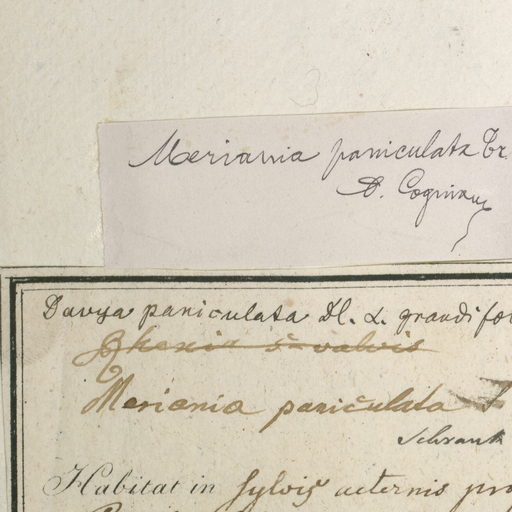 Meriania paniculata Tr
D. Cogniaux
Davya paniculata Dl. α. grandifo
Rhexia 5-valvis
Meriania paniculata
Schrank
Habitat in sylvis aeternis pro